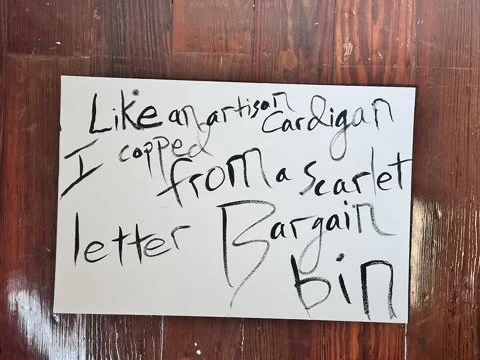 Like an artisan Cardigan
I copped from a scarlet
letter Bargain
bin